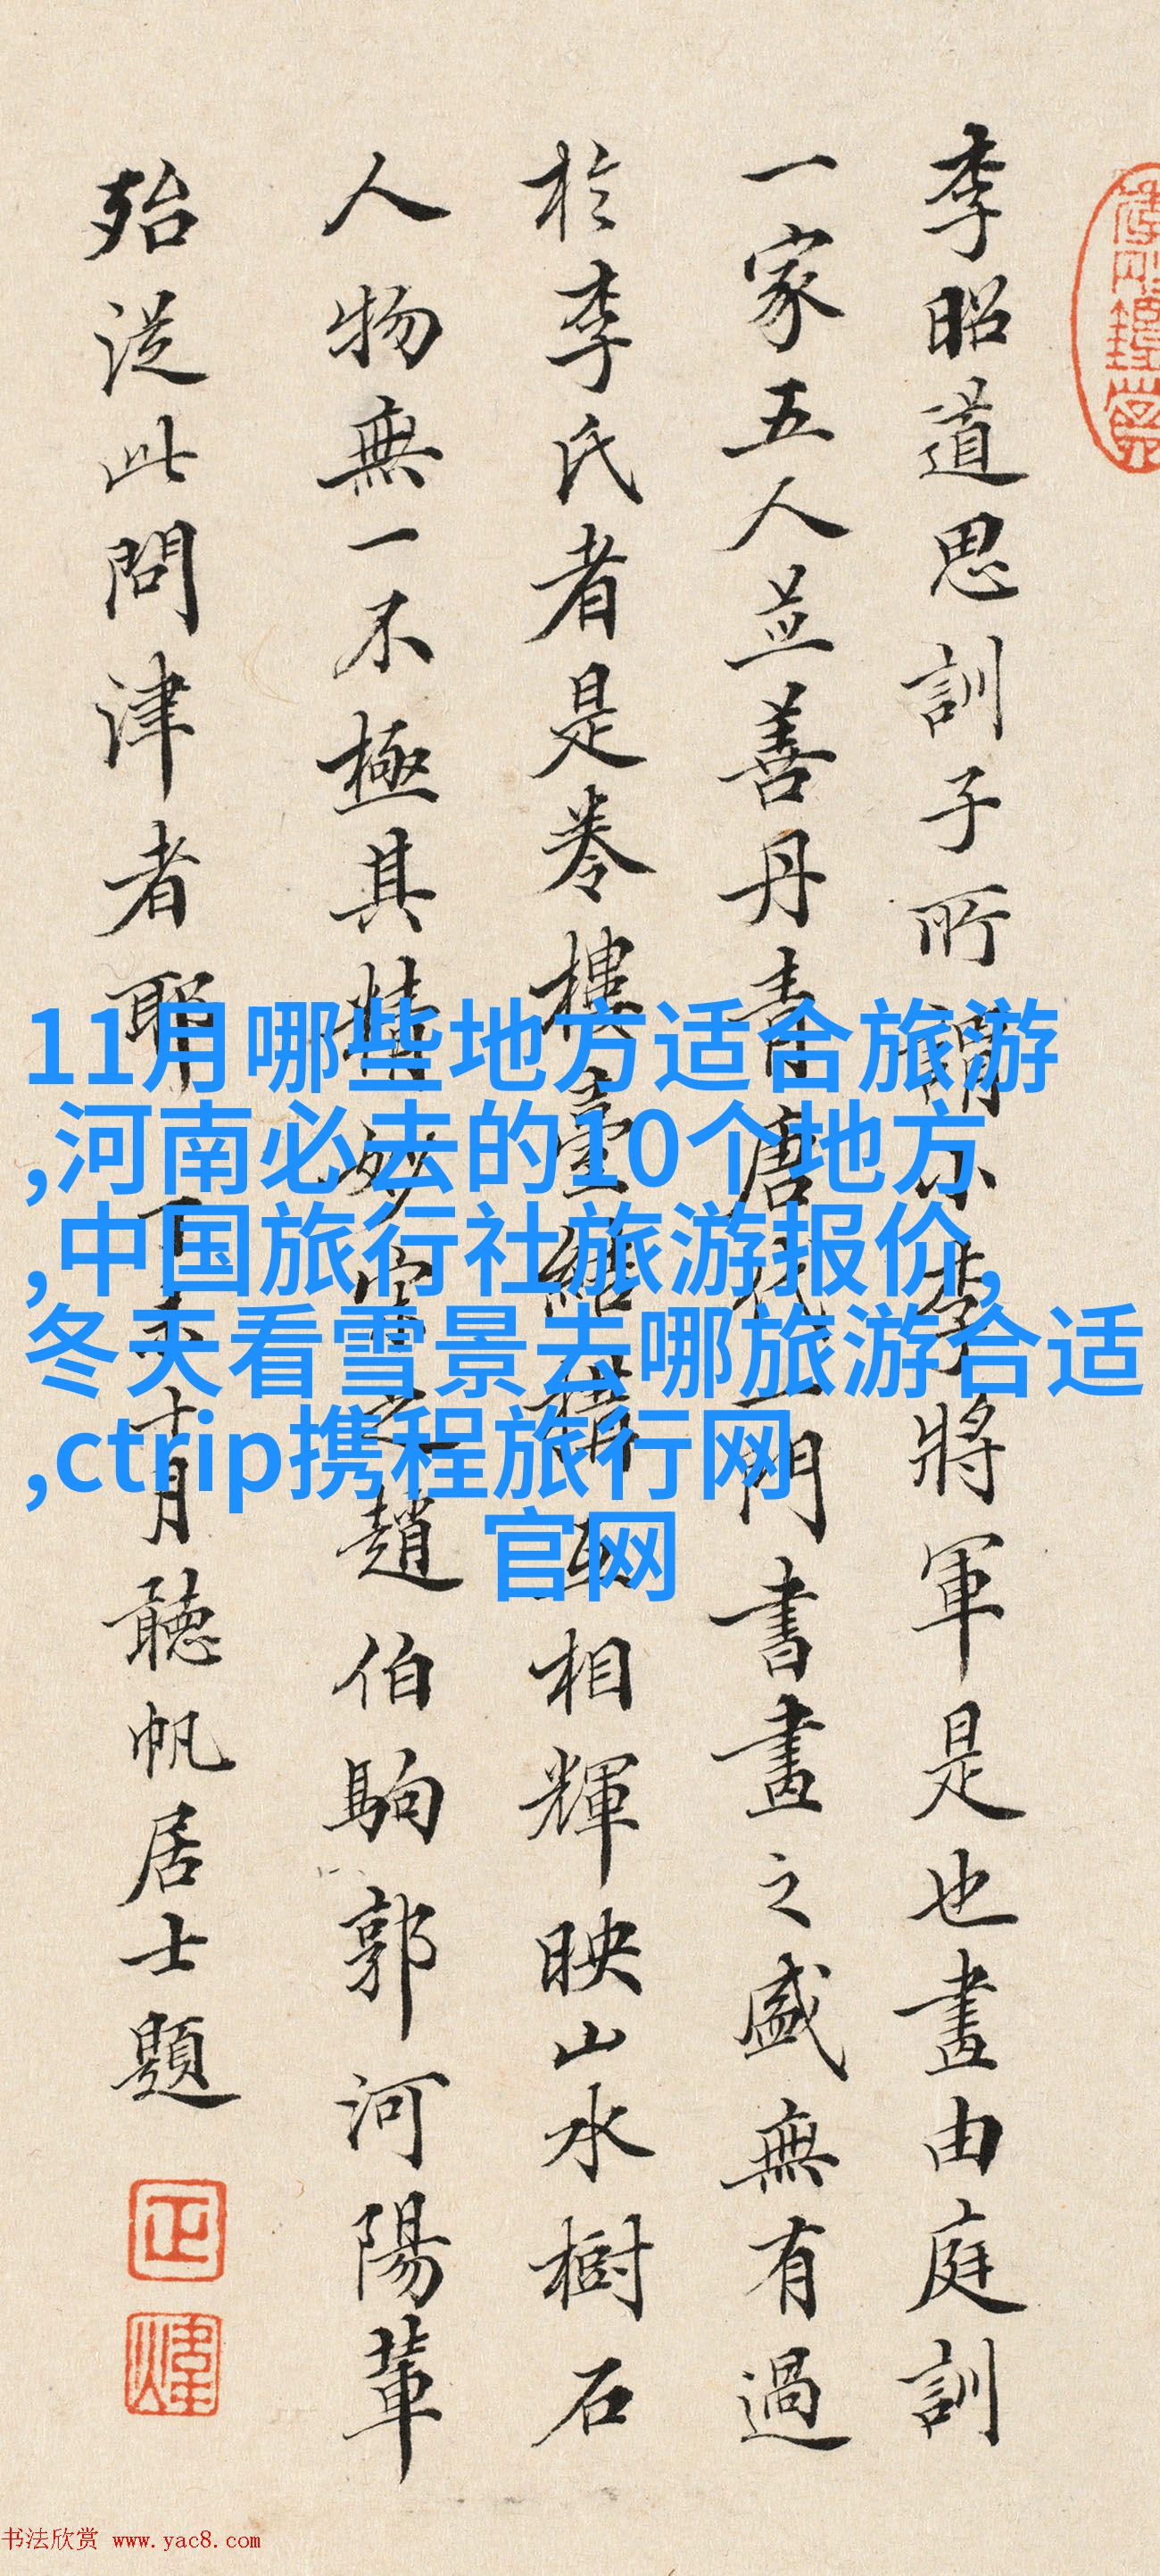 李昭道思訓子所謂小李將軍是也畫由庭訓
一家五人並善丹青唐代一門書畫之盛無有過
於李氏者是卷樓臺結構互相輝映山水樹石
人物無一不極其精妙宋之趙伯駒郭河陽輩
殆從此問津者耶十月聽帆居士題
正
煒
11月哪些地方适合旅游
,河南必去的10个地方
,中国旅行社旅游报价,
冬天看雪景去哪旅游合适
,ctrip携程旅行网
官网
书法欣赏 www.yac8.com